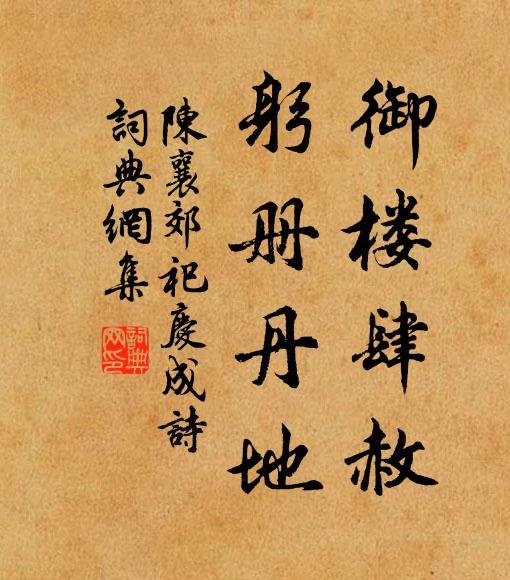 御楼肆赦
躬册丹地
陳襄郊祀慶成詩
詞典網集
詞典网印